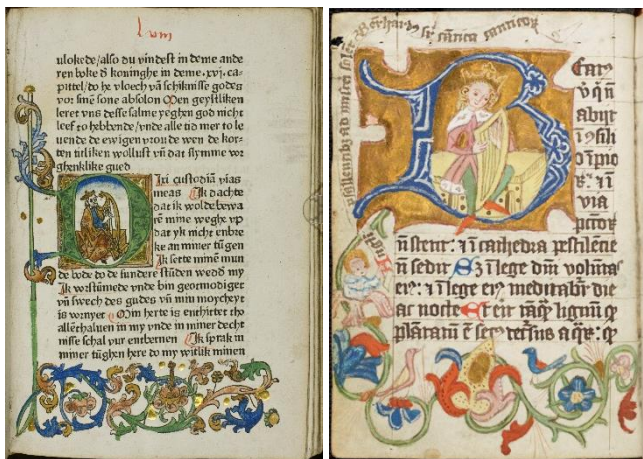 Lviii
vlokede/also du vindest in deme ande
ren boke d koninghe in deme .xvj. ca-
pittel/do he vloech vā schiknisse godes
vor sinē sone absolon Men geystliken
leret vns desse salme yeghen god nicht
leef to hebbende/vnde alle tid mer to le
uende de ewigen vroude wen de kor-
ten titliken wollust vn̄ dat slymme vor
ghenklike gued
Dixi custodiā vias
meas Ik dachte
dat ik wolde bewa
rē mine weghe vp
dat yk nicht enbre
ke an miner tūgen
Ik sette minē mun
de bode do de sundere stūden wedd my
Ik vorstūmede vnde bin geotmodiget
vn̄ swech des gudes vn̄ min
is vornyet Min herte is enthittet tho
allethaluen in my vnde in miner decht
nisse schal vur entbernen Ik sprak in
miner tūghen here do my witlik minen
cantica canticor
Beatꝰ
v̓ q̄ n̄
abijt
ī ↄsilio
īpio
ꝝ ⁊ ī
via
pctoꝝ
n̄ stetit : ⁊ ī cathedra pestilēne
n̄ sedit S ī lege dn̄i volūtas
eiꝰ : ⁊ ī lege eiꝰ meditabr̄ die
ac nocte Et erit tāq̄ lignum q̄
plātatum ē sec̄ aq̄ꝝ : q̄